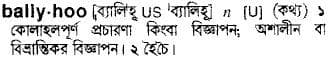 bally·hoo [ব্যালিˈহূ US ˈব্যালিহূ] n [U] (কথ্য) ১
কোলাহলপূর্ণ প্রচারণা কিংবা বিজ্ঞাপন; অশালীন বা
বিভ্রান্তিকর বিজ্ঞাপন। ২ হৈচৈ।